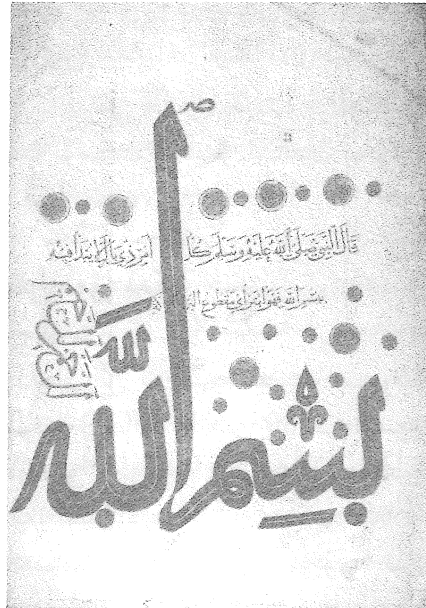 قال النبي صلى الله عليه وسلم كل امر ذي بال لم يبدأ فيه
بسم الله فهو ابتر أي مقطوع البركة
بسم الله